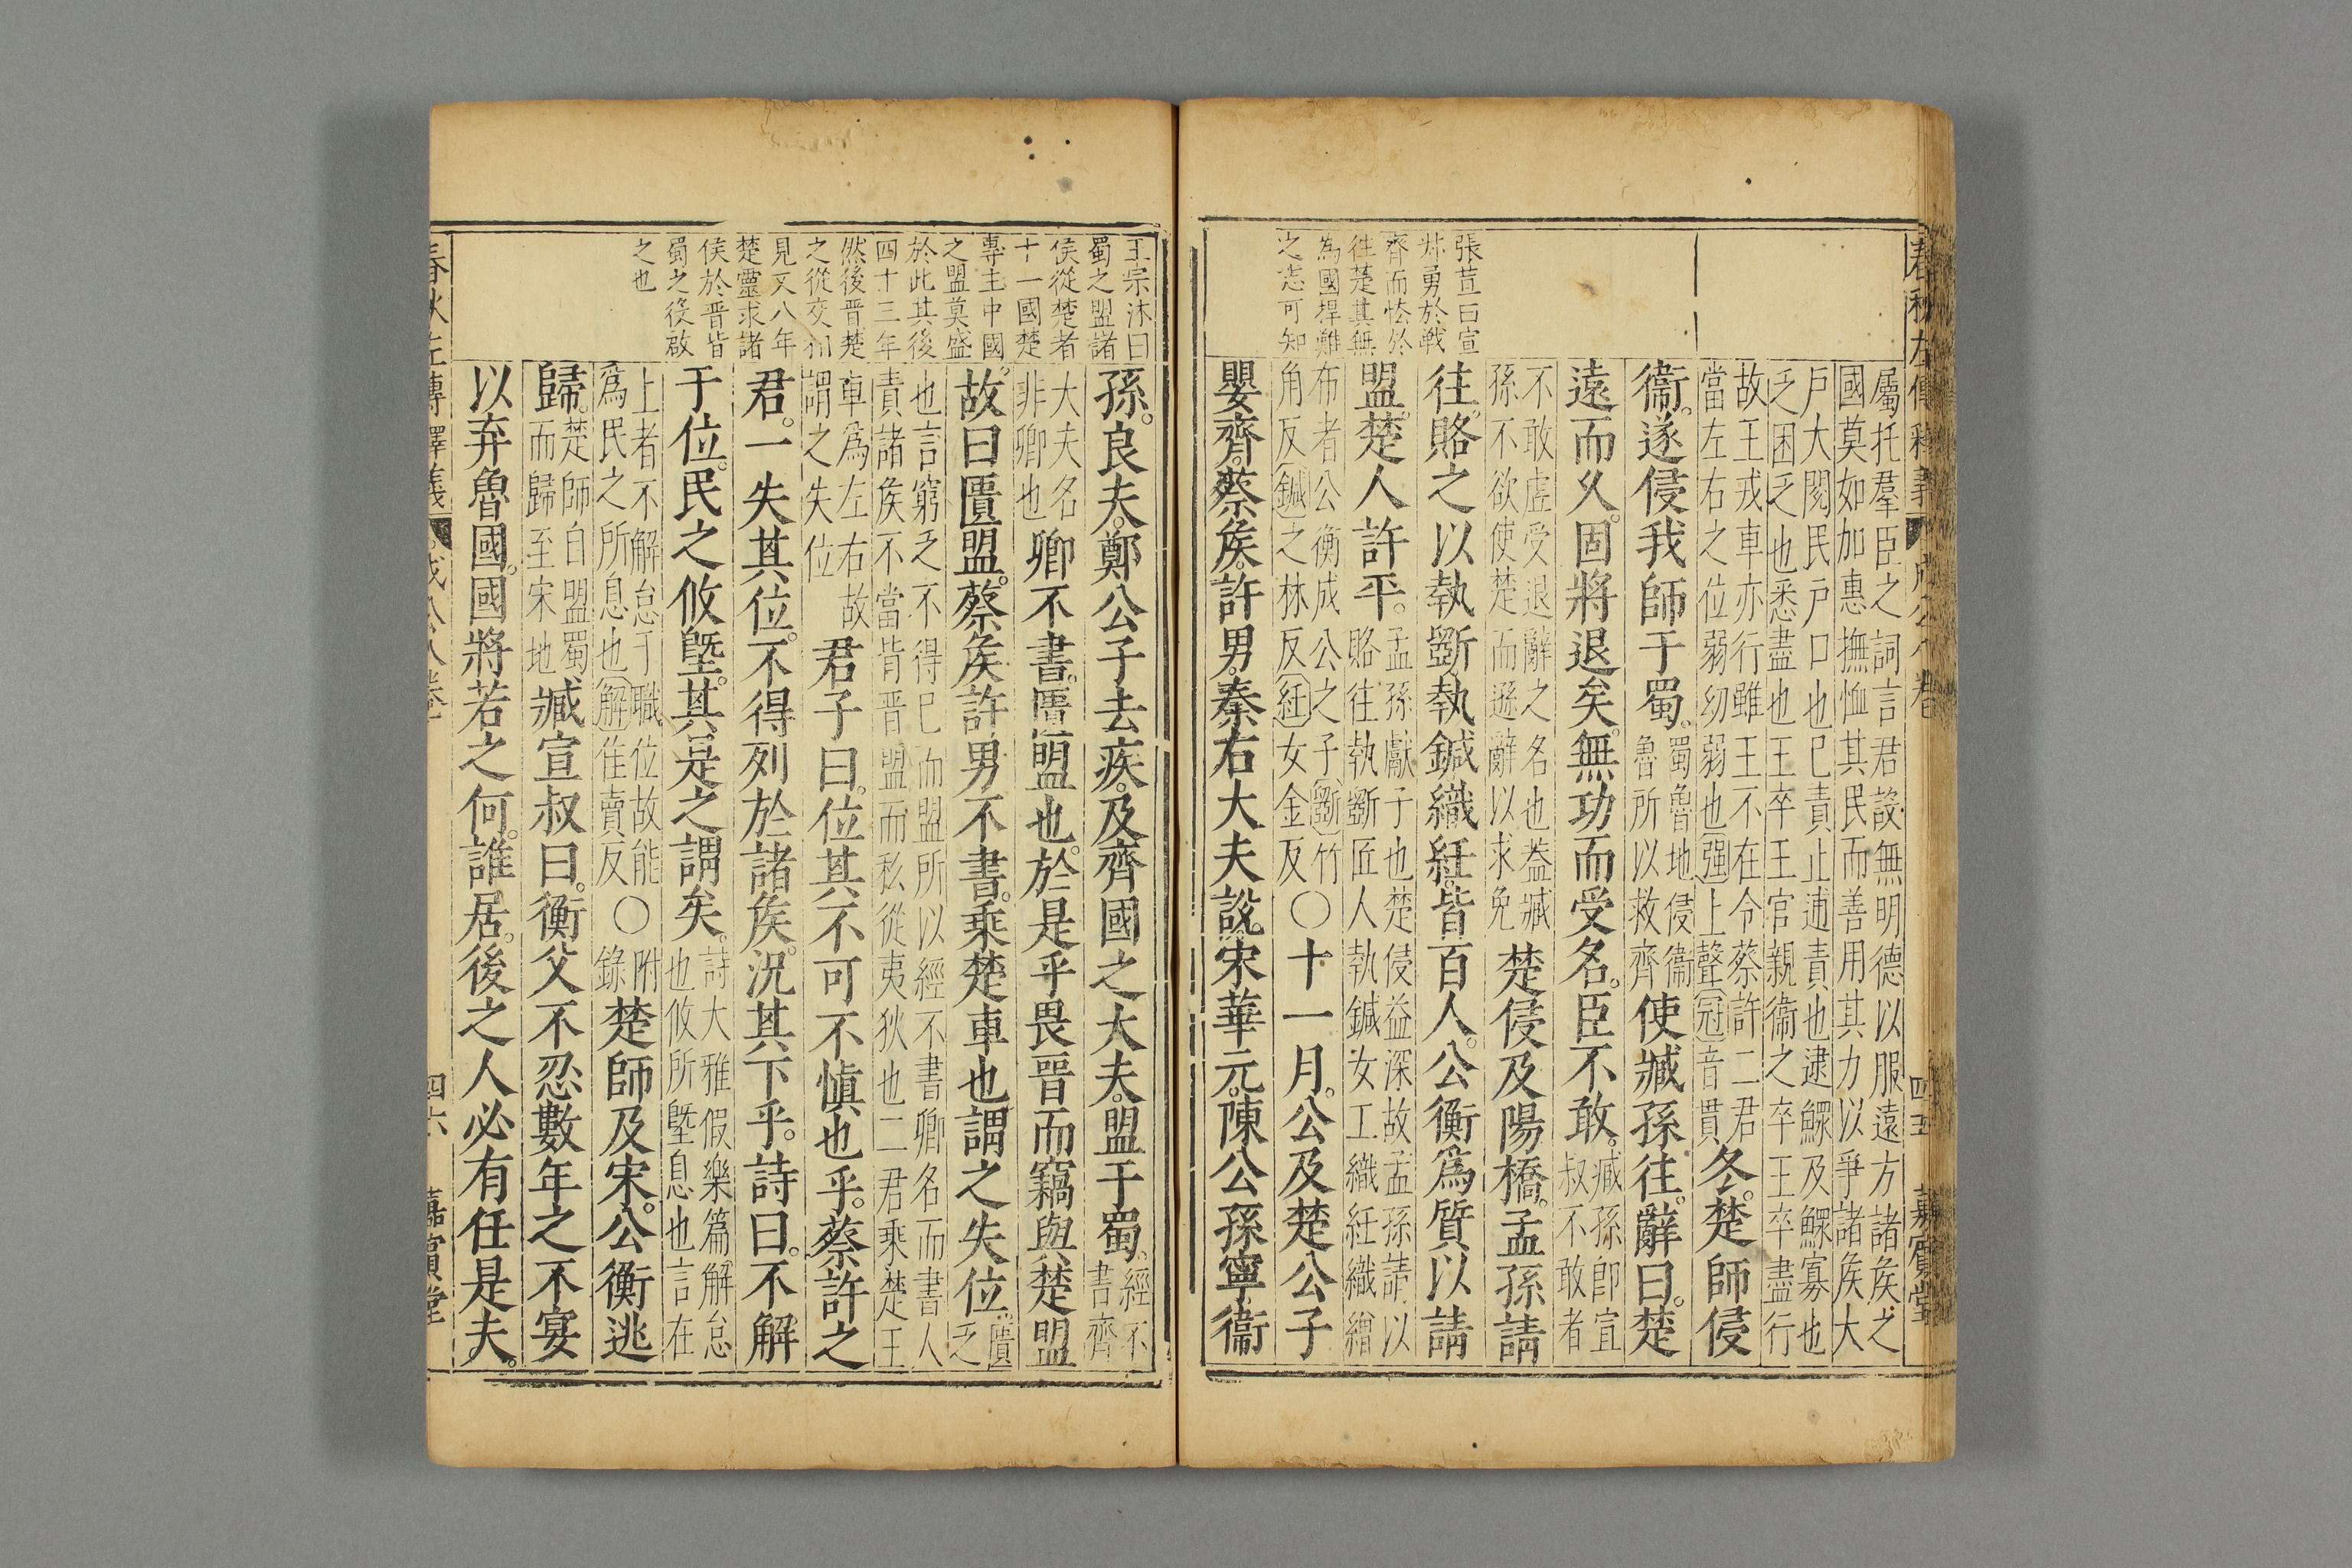 春秋左傳釋義 成公八卷 四五 嘉賓堂
屬托羣臣之詞言君設無明德以服遠方諸矦之
國莫如加惠撫恤其民而善用其力以爭諸矦大
戸大閱民戸口也已責止逋責也逮鰥及鰥寡也
乏困乏也悉盡也王卒王官親衞之卒王卒盡行
故王戎車亦行雖王不在令蔡許二君
當左右之位弱幼弱也強上聲冠音貫
冬楚師侵
衞遂侵我師于蜀
蜀魯地侵衞
魯所以救齊
使臧孫往辭曰楚
遠而久固將退矣無功而受名臣不敢
臧孫卽宣
叔不敢者
不敢虛受退辭之名也葢臧
孫不欲使楚而遜辭以求免
楚侵及陽橋孟孫請
往賂之以執斲執鍼織紝皆百人公衡爲質以請
盟楚人許平
孟孫獻子也楚侵益深故孟孫請以
賂往執斲匠人執鍼女工織紝織繒
布者公衡成公之子斲竹
角反鍼之林反紝女金反
○十一月公及楚公子
嬰齊蔡矦許男秦右大夫說宋華元陳公孫寧衞
張萓曰宣
叔勇於戰
齊而怯於
往楚其無
為國捍難
之志可知
孫良夫鄭公子去疾及齊國之大夫盟于蜀
經不
書齊
大夫名
非卿也
卿不書匱盟也於是乎畏晉而竊與楚盟
故曰匱盟蔡矦許男不書乘楚車也謂之失位
匱
乏
也言窮乏不得已而盟所以經不書卿名而書人
責諸矦不當背晉盟而私從夷狄也二君乘楚王
車爲左右故
謂之失位
君子曰位其不可不愼也乎蔡許之
君一失其位不得列於諸矦況其下乎詩曰不解
于位民之攸塈其是之謂矣
詩大雅假樂篇解怠
也攸所塈息也言在
上者不解怠于職位故能
爲民之所息也解佳賣反
○
附
錄
楚師及宋公衡逃
歸
楚師自盟蜀
而歸至宋地
臧宣叔曰衡父不忍數年之不宴
以弃魯國國將若之何誰居後之人必有任是夫
王宗沐曰
蜀之盟諸
侯從楚者
十一國楚
專主中國
之盟莫盛
於此其後
四十三年
然後晉楚
之從交相
見又八年
楚靈求諸
侯於晉皆
蜀之役啟
之也
春秋左傳釋義 成公八卷 四六 嘉賓堂